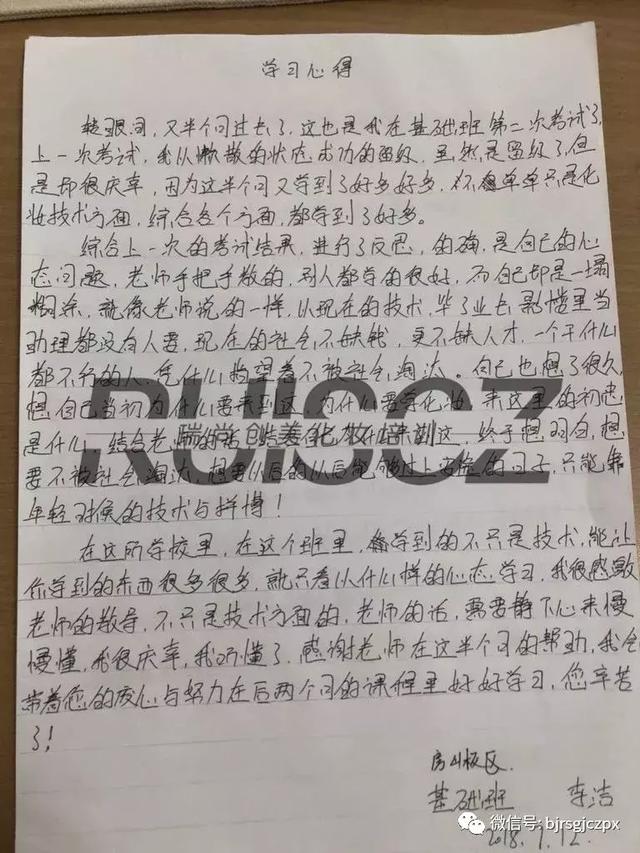 学习心得
转眼间，又半个月过去了，这也是我在基础班第二次考试了，
上一次考试，我从懒散的状态成功的留级，虽然是留级了，但
是却很庆幸，因为这半个月又学到了好多好多，不单单只是化
妆技术方面，综合各个方面，都学到了好多。
综合上一次的考试结果，进行了反思，的确，是自己的心
态问题，老师手把手教的，别人都学的很好，而自己却是一塌
糊涂，就像老师说的一样，以现在的技术，毕了业去影楼里当
助理都没有人要，现在的社会不缺钱，更不缺人才，一个干什么
都不行的人，凭什么指望着不被社会淘汰。自己也想了很久，
想自己当初为什么要来到这，为什么要学化妆，来这里的初衷
是什么，结合老师的话，终于想明白，想
要不被社会淘汰，想要从后的以后能够过上安稳的日子，只能靠
年轻时候的技术与拼博！
在这所学校里，在这个班里，学到的不只是技术，能让
你学到的东西很多很多，就只看以什么样的心态学习，我很感激
老师的教导，不只是技术方面的，老师的话，需要静下心来慢
慢懂，我很庆幸，我听懂了，感谢老师在这半个月的帮助，我会
带着您的爱心与努力在后两个月的课程里好好学习，您辛苦
了！
房山校区.
基础班 李洁
2018.7.12.
RUISCZ
瑞尚创美化妆培训
微信号: bjrsgjczpx